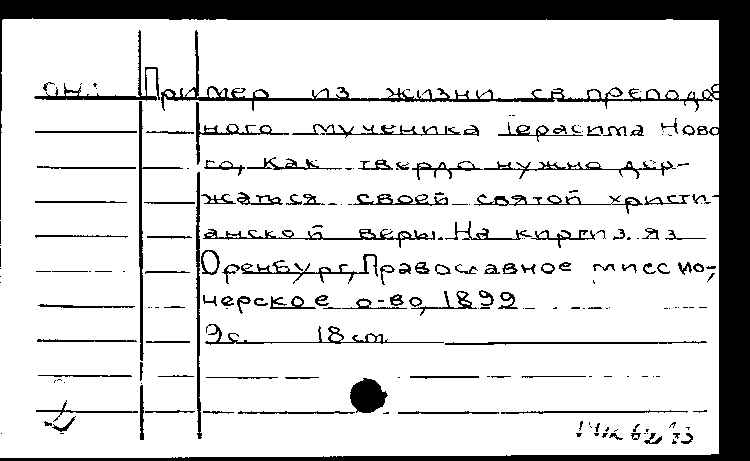 он.: Пример из жизни св. преподоб
ного мученика Герасима Ново
го, как твердо нужно дер-
жаться своей святой христи-
анской веры. На киргиз. яз
Оренбург, Православное миссио-
нерское о-во, 1899
9с. 18 см.